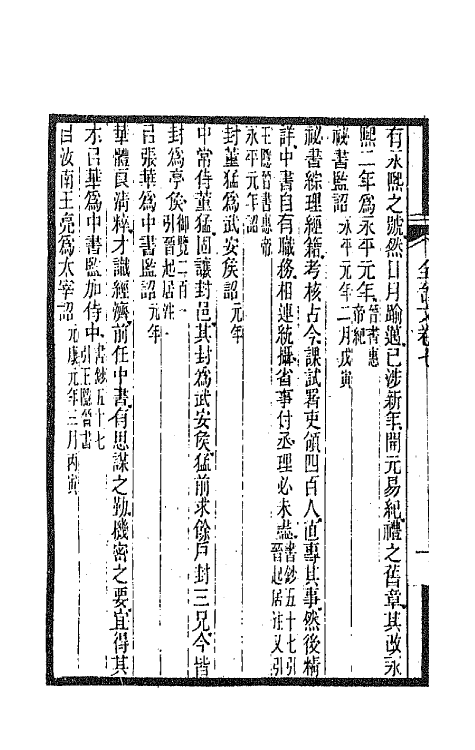 全晉文卷七
一
有永熙之號然日月踰邁已涉新年開元易紀禮之舊章其改永
熙二年為永平元年晉書惠帝紀
祕書監詔永平元年二月戊寅
祕書綜理經籍考核古今課試署吏領四百人宜專其事然後
詳中書自有職務相連統攝省事付丞理必未盡書鈔五十七引晉起居注又引
王隱晉書惠帝永平元年詔
封董猛為武安矦詔元年
中常侍董猛固讓封邑其封為武安矦猛前求餘戶封三兄今皆
封為亭矦御覽二百一引晉起居注
㠯張華為中書監詔元年
華體良清粹才識經濟前任中書有思謀之勤機密之要宜得其
才㠯華為中書監加侍中書鈔五十七引王隱晉書
㠯汝南王亮為太宰詔元康元年三月丙寅